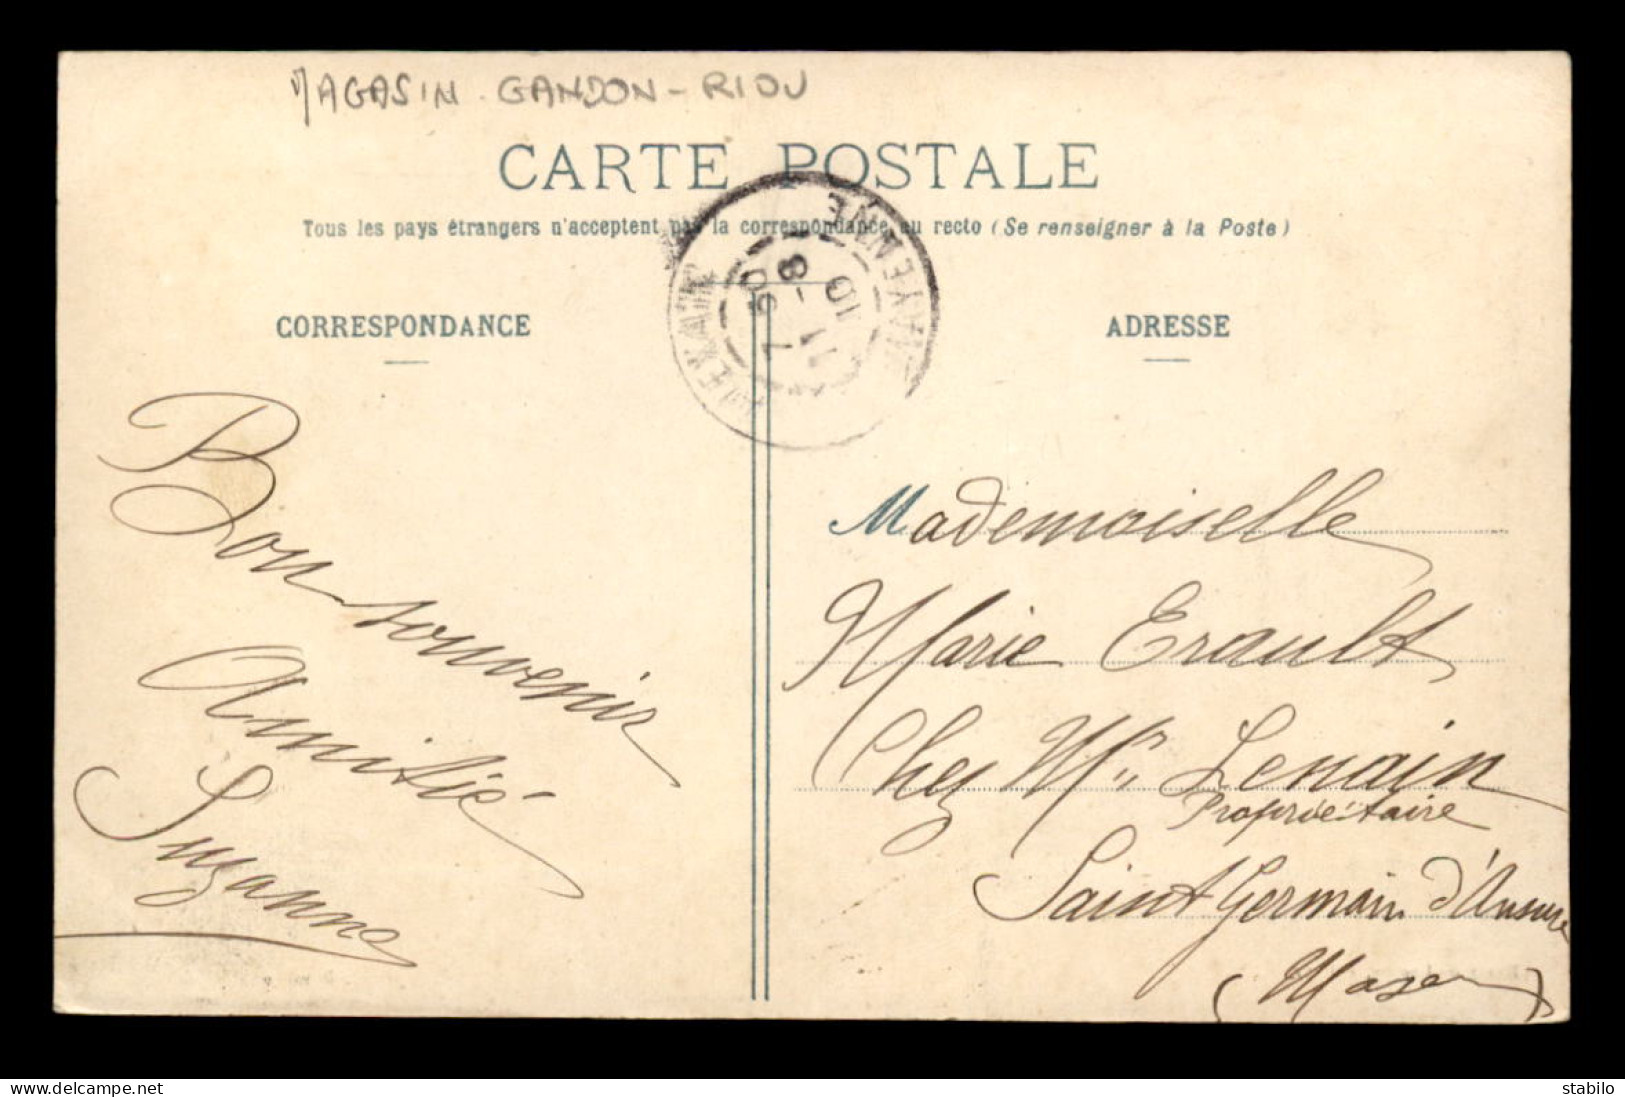 MAGASIN GANDON-RIOU
CARTE POSTALE
Tous les pays étrangers n'acceptent pas la correspondance au recto (Se renseigner à la Poste)
CORRESPONDANCE
ADRESSE
MAYENNE
8-11
10
09
Bon souvenir
Amitié
Suzanne
Mademoiselle
Marie Erault
Chez Mr Lenain
Propriétaire
Saint Germain d'Anxure
(Mayenne)
delcampe.net
stabilo